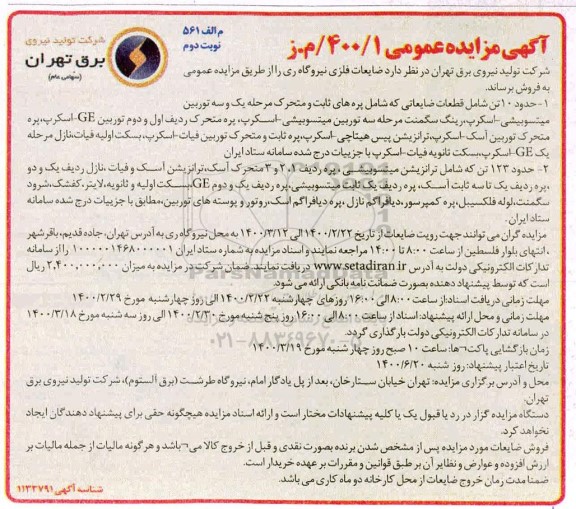 آگهی مزایده عمومی ۴۰۰/۱/م.ز
م الف ۵۶۱
نوبت دوم
شرکت تولید نیروی
برق تهران
(سهامی عام)
شرکت تولید نیروی برق تهران در نظر دارد ضایعات فلزی نیروگاه ری را از طریق مزایده عمومی
به فروش برساند.
۱-حدود ۱۰تن شامل قطعات ضایعاتی که شامل پره های ثابت و متحرک مرحله یک و سه توربین
میتسوبیشی-اسکرپ،رینگ سگمنت مرحله سه توربین میتسوبیشی-اسکرپ، پره متحرک ردیف اول و دوم توربین GE-اسکرپ،پره
متحرک توربین آسک-اسکرپ،ترانزیشن پیس هیتاچی -اسکرپ،پره ثابت و متحرک توربین فیات-اسکرپ،بسکت اولیه فیات،نازل مرحله
یک GE-اسکرپ،بسکت ثانویه فیات-اسکرپ با جزییات درج شده سامانه ستاد ایران
۲- حدود ۱۲۳ تن که شامل ترانزیشن میتسوبیشی ، پره ردیف ۱ و ۲ و ۳ متحرک آسک،ترانزیشن آسک و فیات ،نازل ردیف یک و دو
،پره ردیف یک تا سه ثابت آسک، پره ردیف یک ثابت میتسوبیشی،پره ردیف یک و دوم GE،بسکت اولیه و ثانویه،لاینر،کفشک،شرود
سگمنت،لوله فلکسیبل،پره کمپرسور،دیافراگم نازل ،پره دیافراگم اسک،روتور و پوسته های توربین،مطابق با جزییات درج شده سامانه
ستاد ایران.
مزایده گران می توانند جهت رویت ضایعات از تاریخ ۱۴۰۰/۲/۲۲ الی ۱۴۰۰/۳/۱۲ به محل نیروگاه ری به آدرس تهران، جاده قدیم، باقرشهر
، انتهای بلوار فلسطین از ساعت ۸:۰۰ تا ۱۴:۰۰ مراجعه نمایند و اسناد مزایده به شماره ستاد ایران ۱۰۰۰۰۰۱۴۶۸۰۰۰۰۰۱ را از سامانه
تدارکات الکترونیکی دولت به آدرس www.setadiran.ir دریافت نمایند. ضمان شرکت در مزایده به میزان ۲,۴۰۰,۰۰۰,۰۰۰ ریال
است که توسط پیشنهاد دهنده بصورت ضمانت نامه بانکی ارائه می شود.
مهلت زمانی دریافت اسناد:از ساعت ۸:۰۰ الی ۱۶:۰۰ روزهای چهارشنبه ۱۴۰۰/۲/۲۲ الی روز چهارشنبه مورخ ۱۴۰۰/۲/۲۹
مهلت زمانی و محل ارائه پیشنهاد: اسناد از ساعت ۸:۰۰ الی ۱۶:۰۰ روز پنج شنبه مورخ ۱۴۰۰/۲/۳۰ الی روز سه شنبه مورخ ۱۴۰۰/۳/۱۸
در سامانه تدارکات الکترونیکی دولت بارگذاری گردد.
زمان بازگشایی پاکت¬ها: ساعت ۱۰ صبح روز چهار شنبه مورخ ۱۴۰۰/۳/۱۹
تاریخ اعتبار پیشنهاد: روز شنبه ۱۴۰۰/۶/۲۰
محل و آدرس برگزاری مزایده: تهران خیابان ستارخان، بعد از پل یادگار امام، نیروگاه طرشت (برق آلستوم)، شرکت تولید نیروی برق
تهران.
دستگاه مزایده گزار در رد یا قبول یک یا کلیه پیشنهادات مختار است و ارائه اسناد مزایده هیچگونه حقی برای پیشنهاد دهندگان ایجاد
نخواهد کرد.
فروش ضایعات مورد مزایده پس از مشخص شدن برنده بصورت نقدی و قبل از خروج کالا می¬باشد و هرگونه مالیات از جمله مالیات بر
ارزش افزوده و عوارض و نظایر آن بر طبق قوانین و مقررات بر عهده خریدار است.
ضمنا مدت زمان خروج ضایعات از محل کارخانه دو ماه کاری می باشد.
شناسه آگهی ۱۱۳۳۷۹۱
ParsNamadData
۰۲۱-۸۸۳۴۹۶۷۰-۵